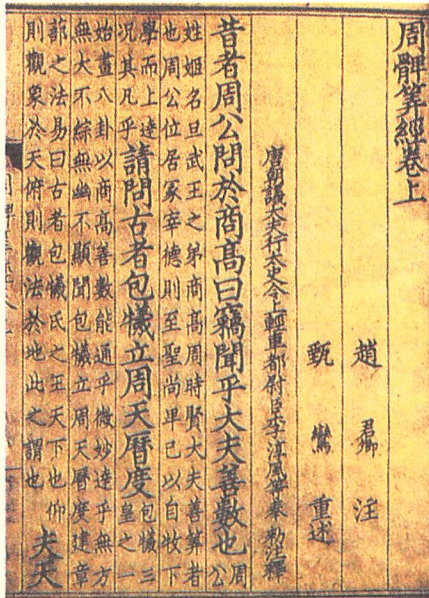 周髀筭經卷上
趙君卿注
甄鸞重述
唐朝議大夫行太史令上輕車都尉臣李淳風等奉勑注釋
昔者周公問於商高曰竊聞乎大夫善數也周公
姓姬名旦武王之弟商高周時賢大夫善筭者
也周公位居冢宰德則至聖尚卑已以自牧下
學而上達況其凡乎請問古者包犧立周天曆度包犧三皇之一
始畫八卦以商高善數能通乎微妙達乎無方
無大不綜無幽不顯聞包犧立周天曆度建章
蔀之法易曰古者包犧氏之王天下也仰
則觀象於天俯則觀法於地此之謂也夫天